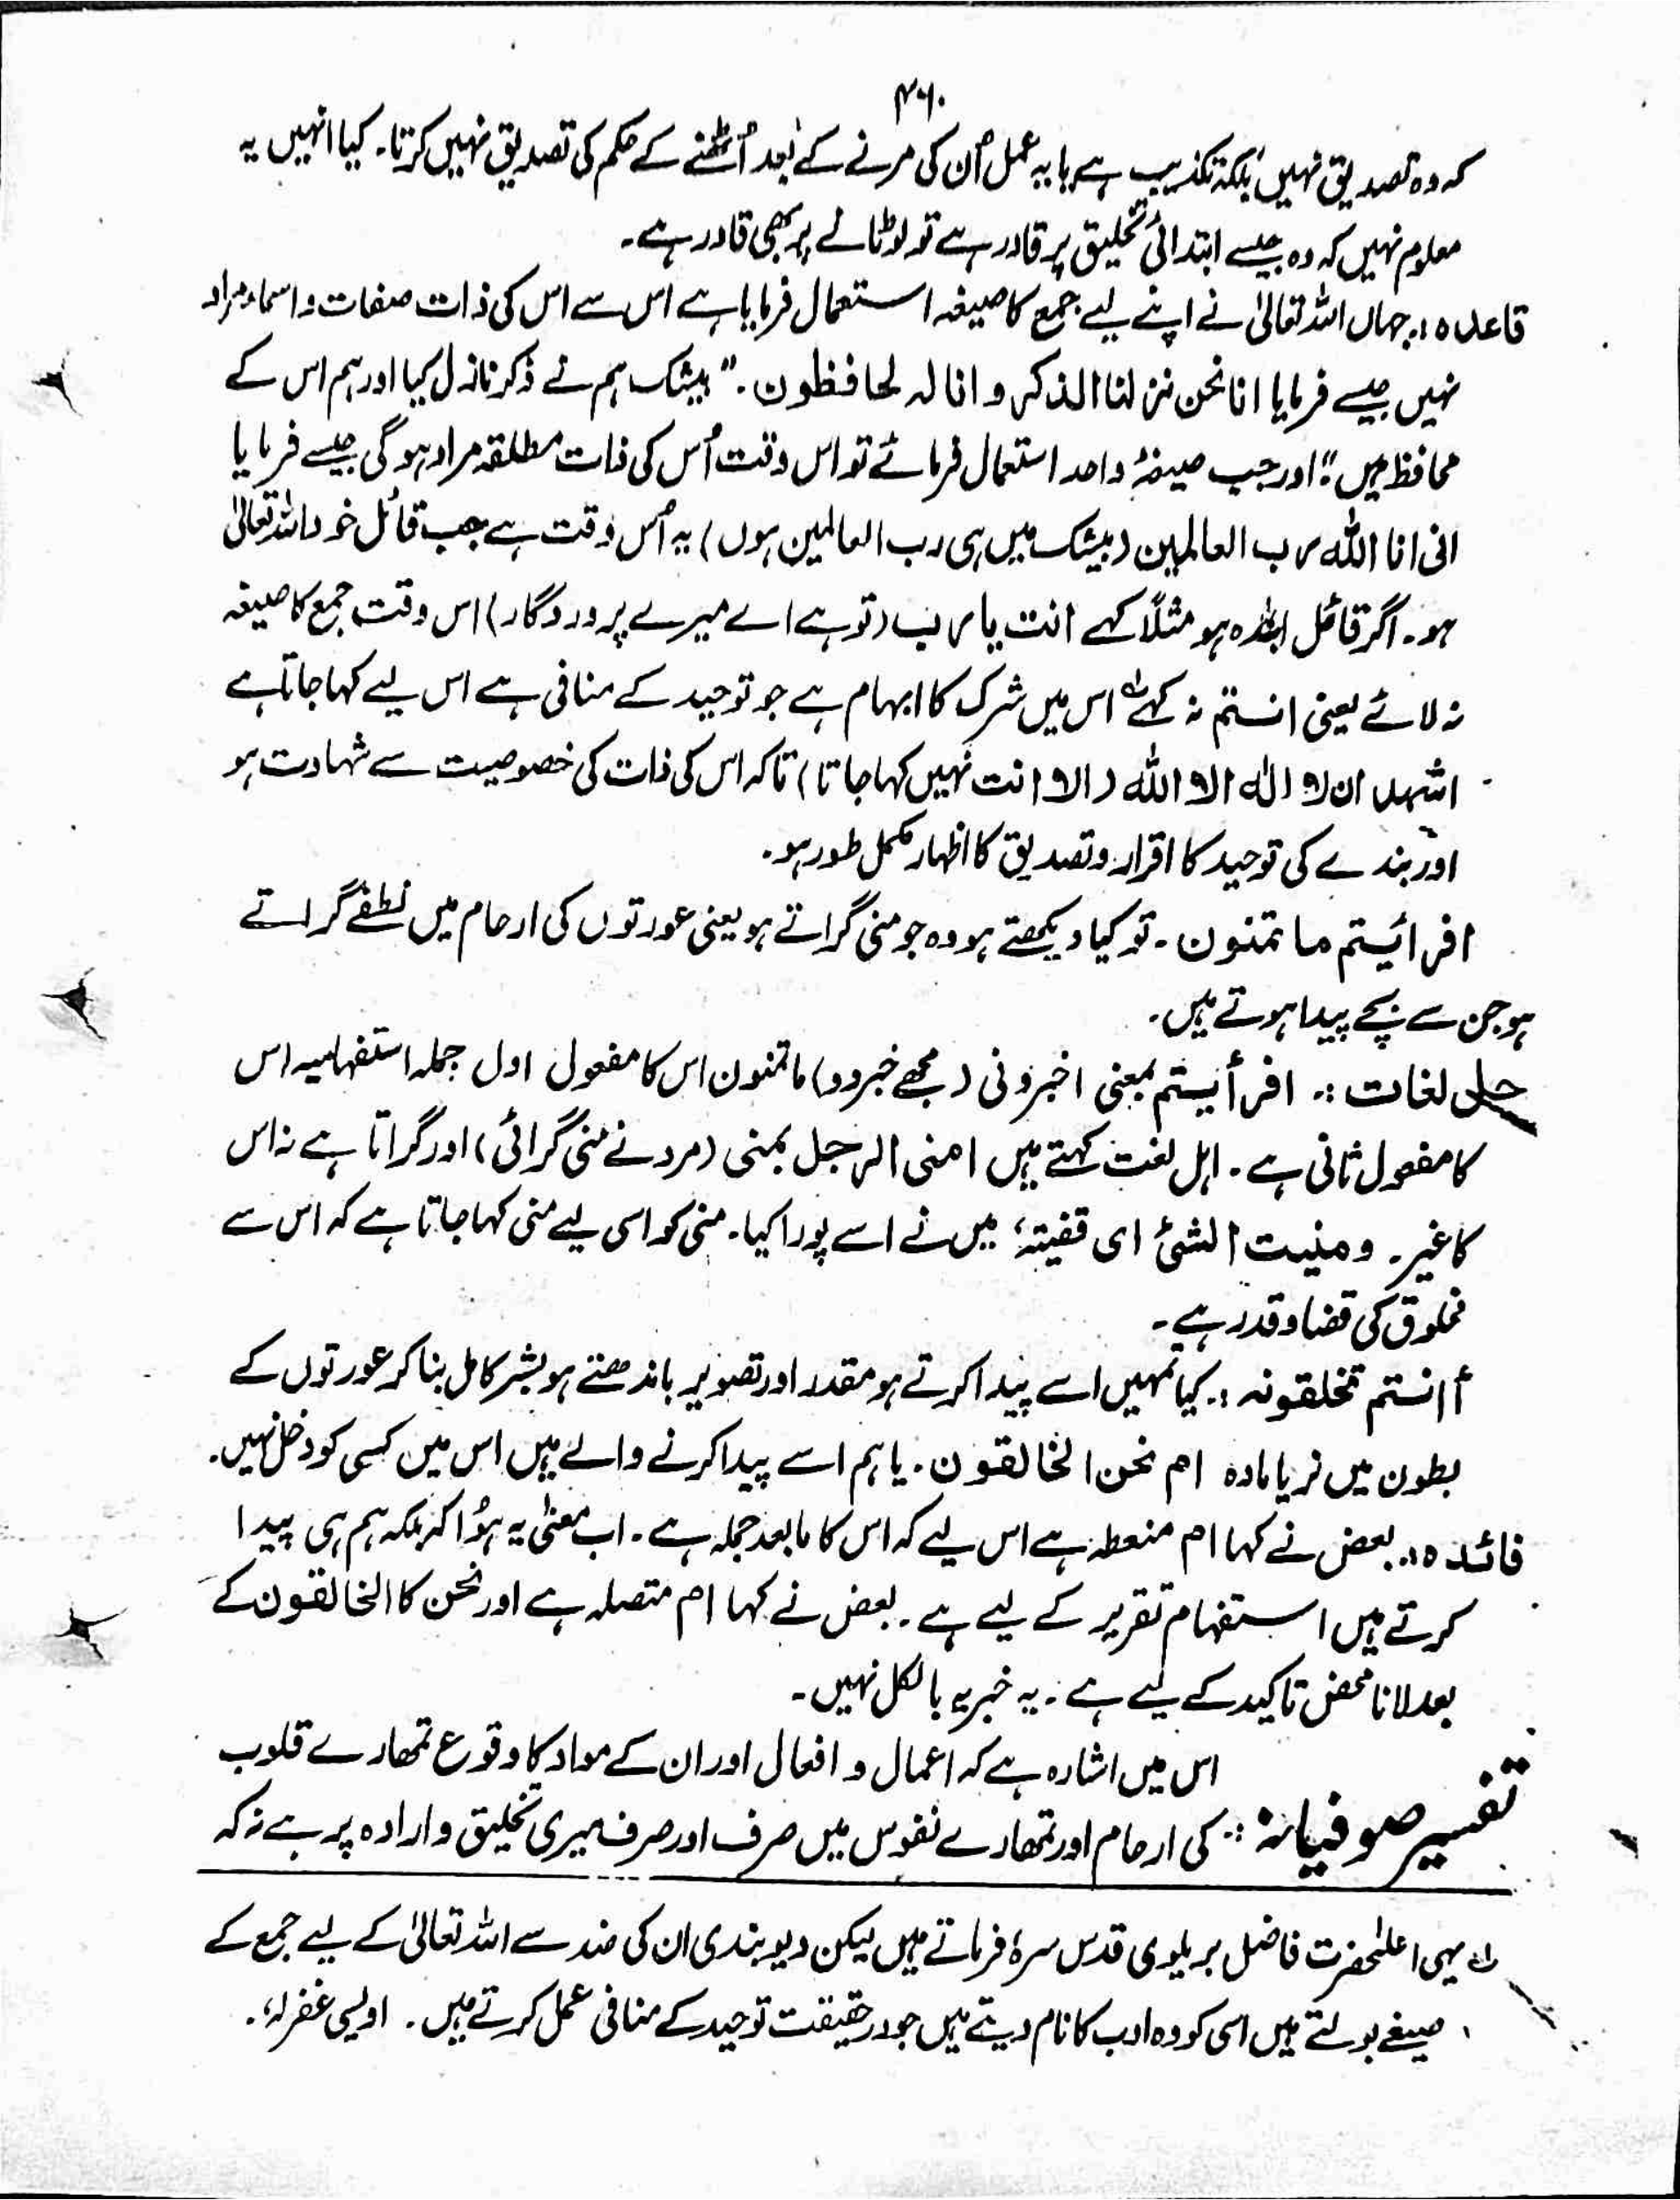 ۴۶۰
کہ وہ تصدیق نہیں بلکہ تکذیب ہے یا یہ عمل اُن کی مرنے کے بعد اُٹھنے کے حکم کی تصدیق نہیں کرتا۔ کیا انہیں یہ
معلوم نہیں کہ وہ جیسے ابتدائی تخلیق پر قادر ہے تو لوٹانے پر بھی قادر ہے۔
قاعدہ :۔ جہاں اللہ تعالیٰ نے اپنے لیے جمع کا صیغہ استعمال فرمایا ہے اس سے اس کی ذات صفات و اسماء مراد
نہیں جیسے فرمایا انا نحن نزلنا الذکر و انا لہ لحافظون۔ "بیشک ہم نے ذکر نازل کیا اور ہم اس کے
محافظ ہیں"؛ اور جب صیغۂ واحد استعمال فرمائے تو اس وقت اُس کی ذات مطلقہ مراد ہو گی جیسے فرمایا
انی انا اللہ رب العالمین (بیشک میں ہی رب العالمین ہوں) یہ اُس وقت ہے جب قائل خود اللہ تعالیٰ
ہو۔ اگر قائل بندہ ہو مثلاً کہے انت یا رب (تو ہے اے میرے پروردگار) اس وقت جمع کا صیغہ
نہ لائے یعنی انتم نہ کہے؎ اس میں شرک کا ابہام ہے جو توحید کے منافی ہے اس لیے کہا جاتا ہے
اشہد ان لا الٰہ الا اللہ (الا انت نہیں کہا جاتا) تاکہ اس کی ذات کی خصوصیت سے شہادت ہو
اور بندے کی توحید کا اقرار و تصدیق کا اظہار مکمل طور ہو۔
افرائیتم ما تمنون۔ تو کیا دیکھتے ہو وہ جو منی گراتے ہو یعنی عورتوں کی ارحام میں نطفے گراتے
ہو جن سے بچے پیدا ہوتے ہیں۔
حل لغات :۔ افرأیتم بمعنی اخبرونی (مجھے خبر دو) ما تمنون اس کا مفعول اول جملہ استفہامیہ اس
کا مفعول ثانی ہے۔ اہل لغت کہتے ہیں امنی الرجل یمنی (مرد نے منی گرائی) اور گراتا ہے نہ اس
کا غیر۔ و منیت الشئ ای قضیتہ، میں نے اسے پورا کیا۔ منی کو اسی لیے منی کہا جاتا ہے کہ اس سے
مخلوق کی قضا و قدر ہے۔
أانتم تخلقونہ :۔ کیا تمہیں اسے پیدا کرتے ہو مقدر اور تصویر باندھتے ہو بشر کامل بنا کر عورتوں کے
بطون میں نر یا مادہ ام نحن الخالقون۔ یا ہم اسے پیدا کرنے والے ہیں اس میں کسی کو دخل نہیں۔
فائدہ :۔ بعض نے کہا ام منعطہ ہے اس لیے کہ اس کا مابعد جملہ ہے۔ اب معنٰی یہ ہُوا کہ بلکہ ہم ہی پیدا
کرتے ہیں استفہام تقریر کے لیے ہے۔ بعض نے کہا ام متصلہ ہے اور نحن کا الخالقون کے
بعد لانا محض تاکید کے لیے ہے۔ یہ خبریہ بالکل نہیں۔
اس میں اشارہ ہے کہ اعمال و افعال اور ان کے مواد کا وقوع تمھارے قلوب
تفسیر صوفیانہ :۔ کی ارحام اور تمھارے نفوس میں صرف اور صرف میری تخلیق و ارادہ پر ہے نہ کہ
؎ یہی اعلٰحضرت فاضل بریلوی قدس سرہٗ فرماتے ہیں لیکن دیوبندی ان کی ضد سے اللہ تعالیٰ کے لیے جمع کے
صیغے بولتے ہیں اسی کو وہ ادب کا نام دیتے ہیں جو درحقیقت توحید کے منافی عمل کرتے ہیں۔ اویسی غفرلہٗ۔